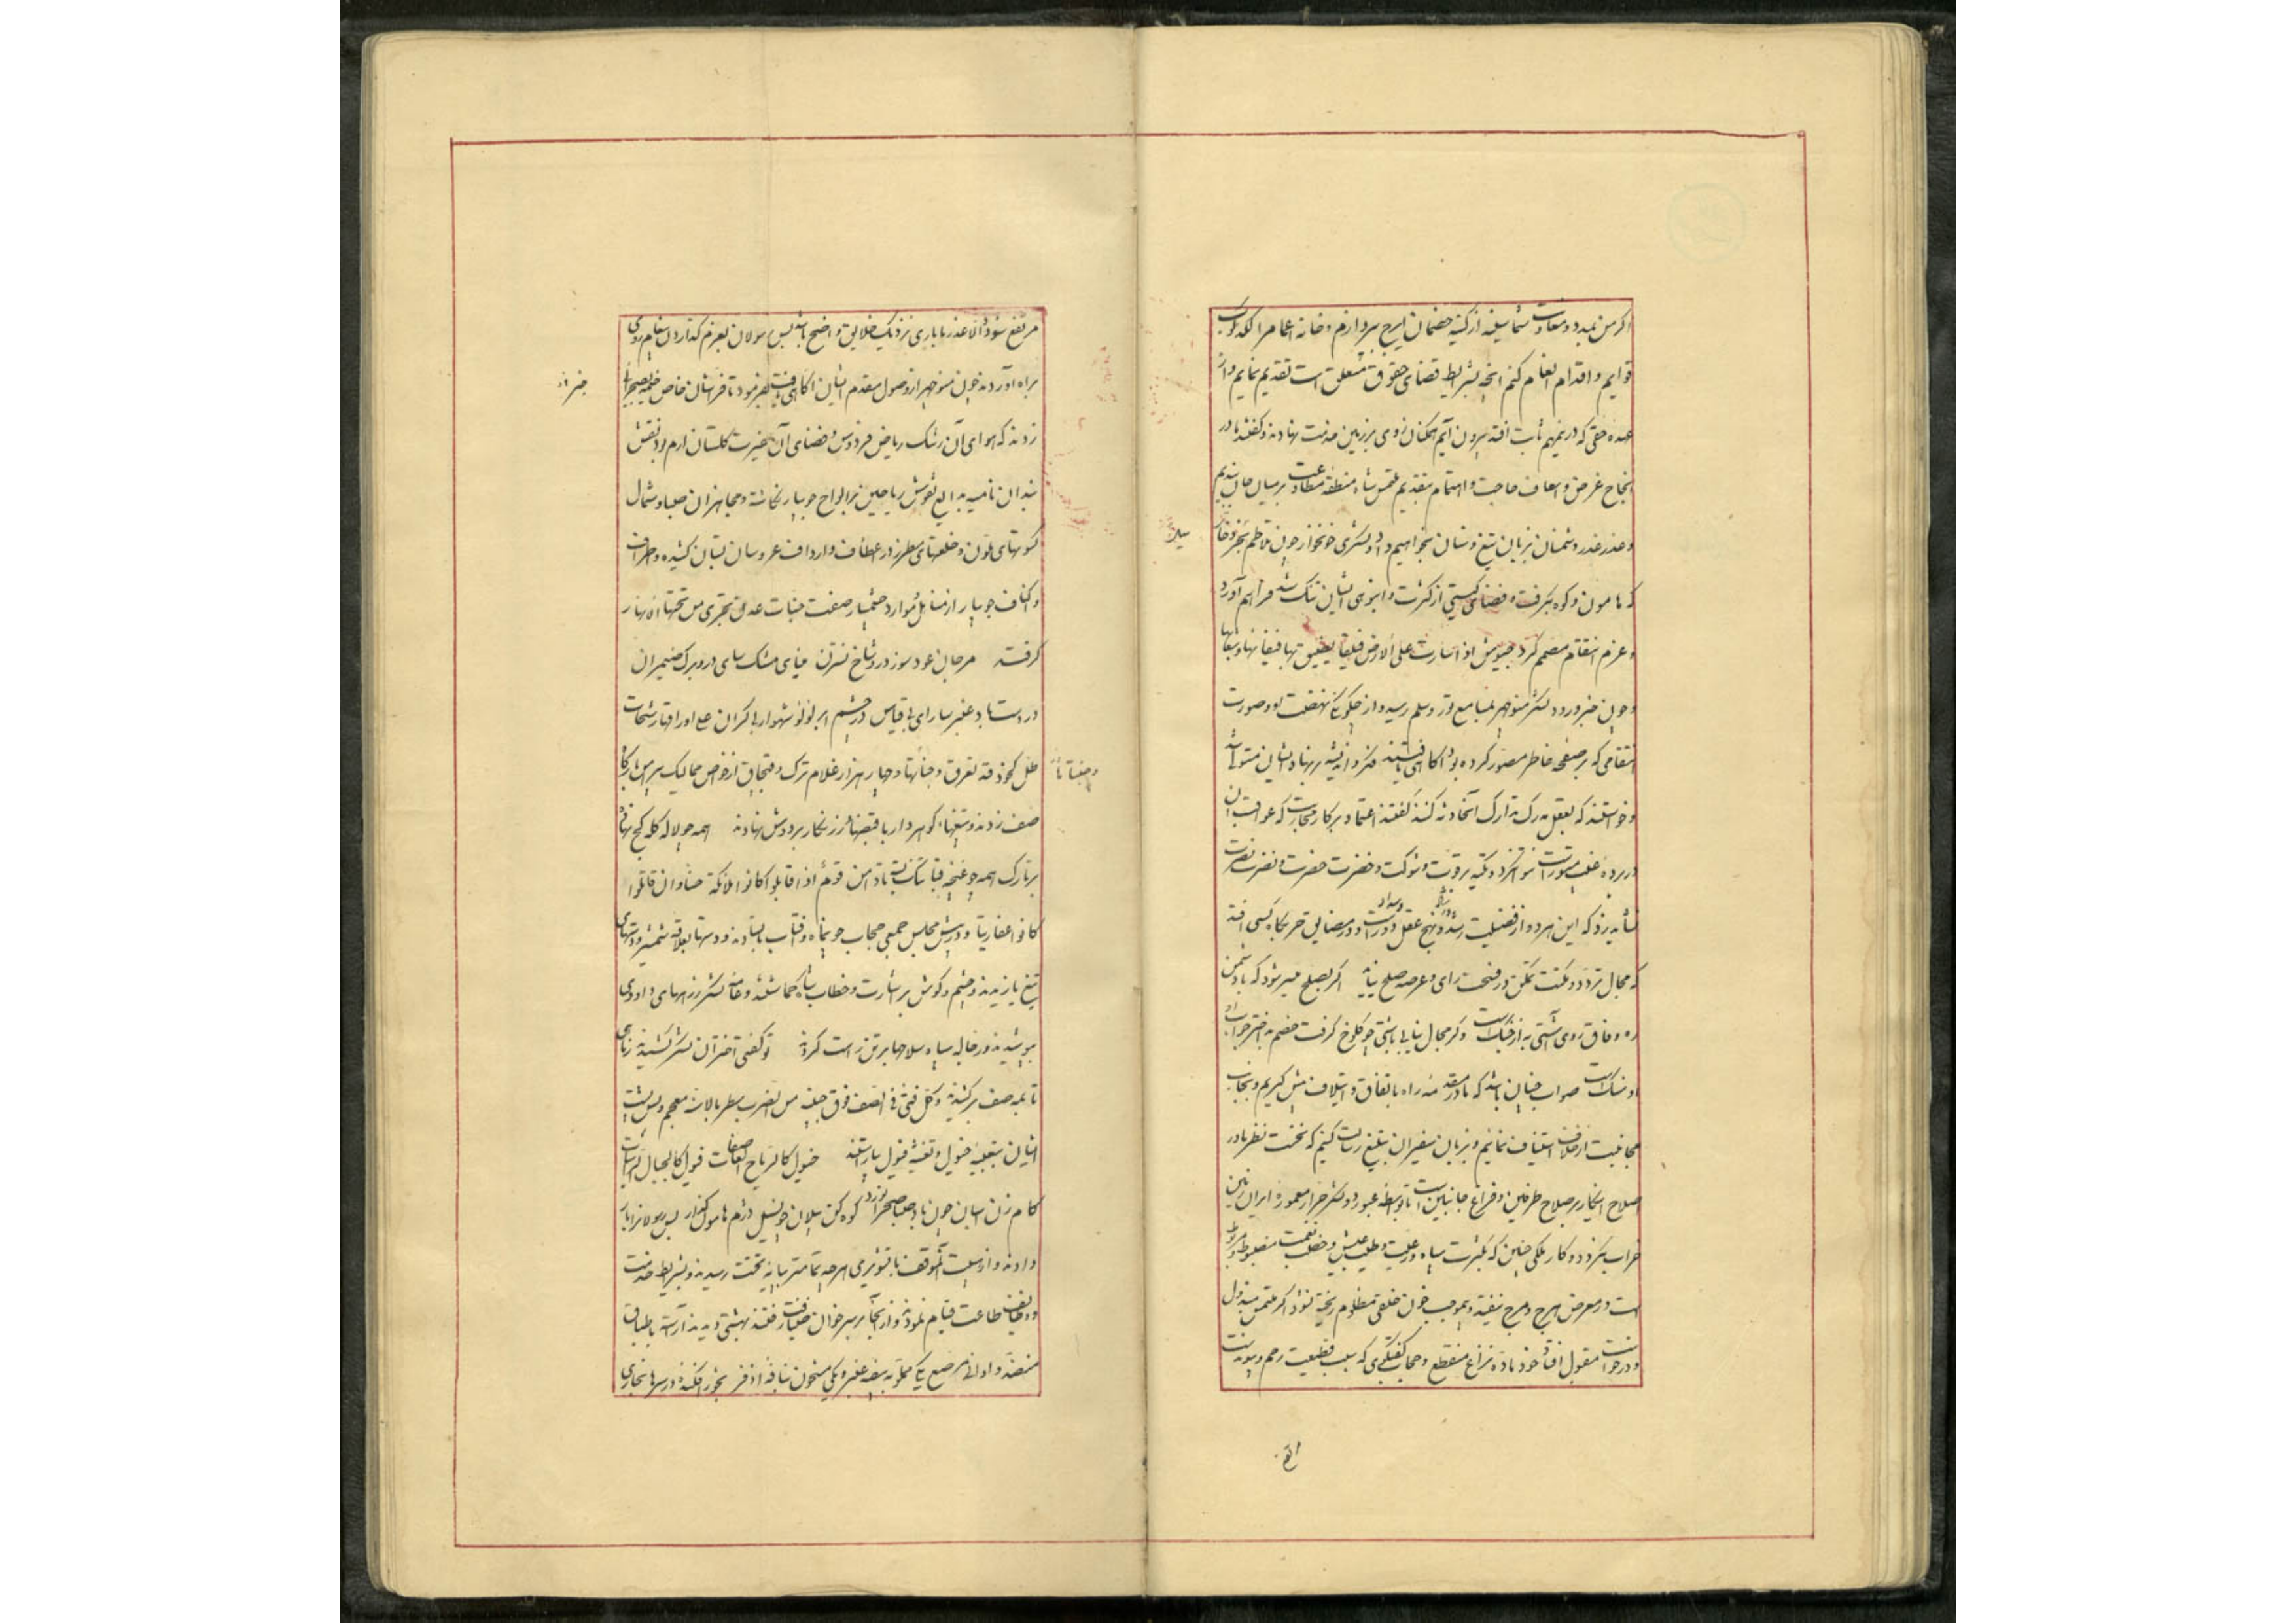 اگر من بمدد و معاونت شما سینه از کینه خصمان ایرج بپردازم و خانه اعمام را لگدکوب
قوایم و اقدام انعام کنم آنچه بشرایط قضای حقوق متعلق است تقدیم نمایم و از
عهده حقی که در ذمتم ثابت افتد بیرون آیم همکنان روی بر زمین خدمت نهادند و گفتند ما در
انجاح غرض و اسعاف حاجت و اهتمام بتقدیم ملتمس شاه منطقه مطاوعت بر میان جان بندیم
و عذر غدر دشمنان بزبان تیغ و سنان بخواهیم داد و لشکری خونخوار چون تلاطم بحر زخار
سیلاب
که هامون و کوه بگرفت و فضای گیتی از کثرت و انبوهی ایشان تنگ شد فراهم آورد
و عزم انتقام مصمم کرد جیوش اذا سارت علی الارض فیلقا یضیق بها فیفانها و بقاعها
و چون خبر ورود لشکر منوچهر بمسامع تور و سلم رسید و از چگونگی نهضت او و صورت
انتقامی که بر صفحه خاطر مصور کرده بود آگاهی یافتند فکر و اندیشه بر نهاد ایشان مستولی شد
و خواستند که بعقل مدرک تدارک آنحادثه کنند گفتند اعتماد بر کار محاربت که عواقب آن
در پرده غیب مستورست نتوان کرد و تکیه بر قوت و شوکت و حضرت و نصرت
نشاید زد که این هر دو از فضیلت رشد و نهج عقل دورست و در مضایق حربگاه کسی افتد
که مجال تردد و مکنت تمکن در فسحت رای و عرصه صلح نیابد اگر بصلح میسر شود که با دشمن
ره وفاق روی آشتی به از جنگ است وگر مجال نیابی باشتی چو کلوخ گرفت خصم به اختر جواب
او سنگ است صواب چنان باشد که ما در مقدمه راه باتفاق و ایتلاف پیش گیریم و بجانب
مجانبت از خلاف استیناف نمائیم و بزبان سفیران تبلیغ رسالت کنیم که نخست نظر ما در
اصلاح اینکار بر صلاح طرفین و فراغ جانبین است تا بواسطه عبور دو لشکر جرار معموره ایران زمین
خراب نگردد و کار ملکی چنین که بکثرت سپاه و رعیت و طیب عیش و خصب نعمت مضبوط و مربوط
است در معرض هرج و مرج نیفتد و بموجب خون خلقی مظلوم ریخته نشود اگر ملتمس مبذول
و درخواست مقبول افتد خود ماده نزاع منقطع و حجاب گفتگوی که سبب قطیعت رحم و پیوند است
مرتفع شود و الا عذر ما باری نزدیک خلایق واضح باشد پس رسولان بعزم گذاردن پیغام روی
براه آوردند چون منوچهر از وصول مقدم ایشان آگاهی یافت بفرمود تا فراشان خاص خیمه بصحرائی
زدند که هوای آن رشک ریاض فردوس و فضای آن غیرت گلستان ارم بود نقش
بندان نامیه بدایع نقوش ریاحین بر الواح جویبار نگاشته و مجاهزان صبا و شمال
کسوتهای ملون و خلعتهای مطرز در اعطاف و ارداف عروسان بستان کشیده و اطراف
و اکناف جویبار از مناهل و موارد چشمه‌سار صفت جنات عدن تجری من تحتها الانهار
گرفته مرجان عودسوز در و شاخ نسترن مینای مشک سای در و برگ ضیمران
در دست باد عنبر سارای بی قیاس در چشم ابر لولو شهوار بیکران علی اوراقها رشحات
طل کخوذ قد تعرق وجنتاها و چهار هزار غلام ترک و قبچاق از خواص ممالیک
و جفتاها
صف زدند و تیغها گوهردار با قبضهای زرنگار بر دوش نهادند همه چو لاله کله کج نهاده
بر تارک همه چو غنچه قبا تنگ بسته تا دامن قوم اذا قابلوا کانوا ملائکة حسنا و ان قاتلوا
کانوا عفاریتا و در پیش مجلس جمعی حجاب چون ماه و آفتاب بایستادند و دستها بعلاقه شمشیر و دستهای
تیغ یازیدند و چشم و گوش بر اشارت و خطاب شاه گماشتند و عامه لشکر زرههای داودی
بپوشیدند و رجاله سپاه سلاحها بر تن راست کردند تو گفتی اختران لشکر کشیدند زماهی
تا بمه صف بر کشیدند و کل فتی فی الصف فوق جبینه من الضرب سطر بالاسنة معجم و پس پشت
ایشان بتعبیه خیول و تغشیه فیول بیاراستند خیول کالریاح العاصفات فیول کالجبال الراسیات
کام زن اسبان چون باد صبا صحرانورد کوه کن پیلان چو نیل درم هامون گذار پس رسولانرا بار
دادند و از هیبت آنموقف با تشویری هرچه تمامتر بپایه تخت رسیدند و بشرایط خدمت
و وظایف طاعت قیام نمودند و از آنجا بر سر خوان ضیافت رفتند بهشتی دیدند آراسته باطباق
منضد و اوانی مرصع یکی مملو بسفره عنبر و یکی مشحون بنافه اذفر بخور افکنده در سرها بخاری